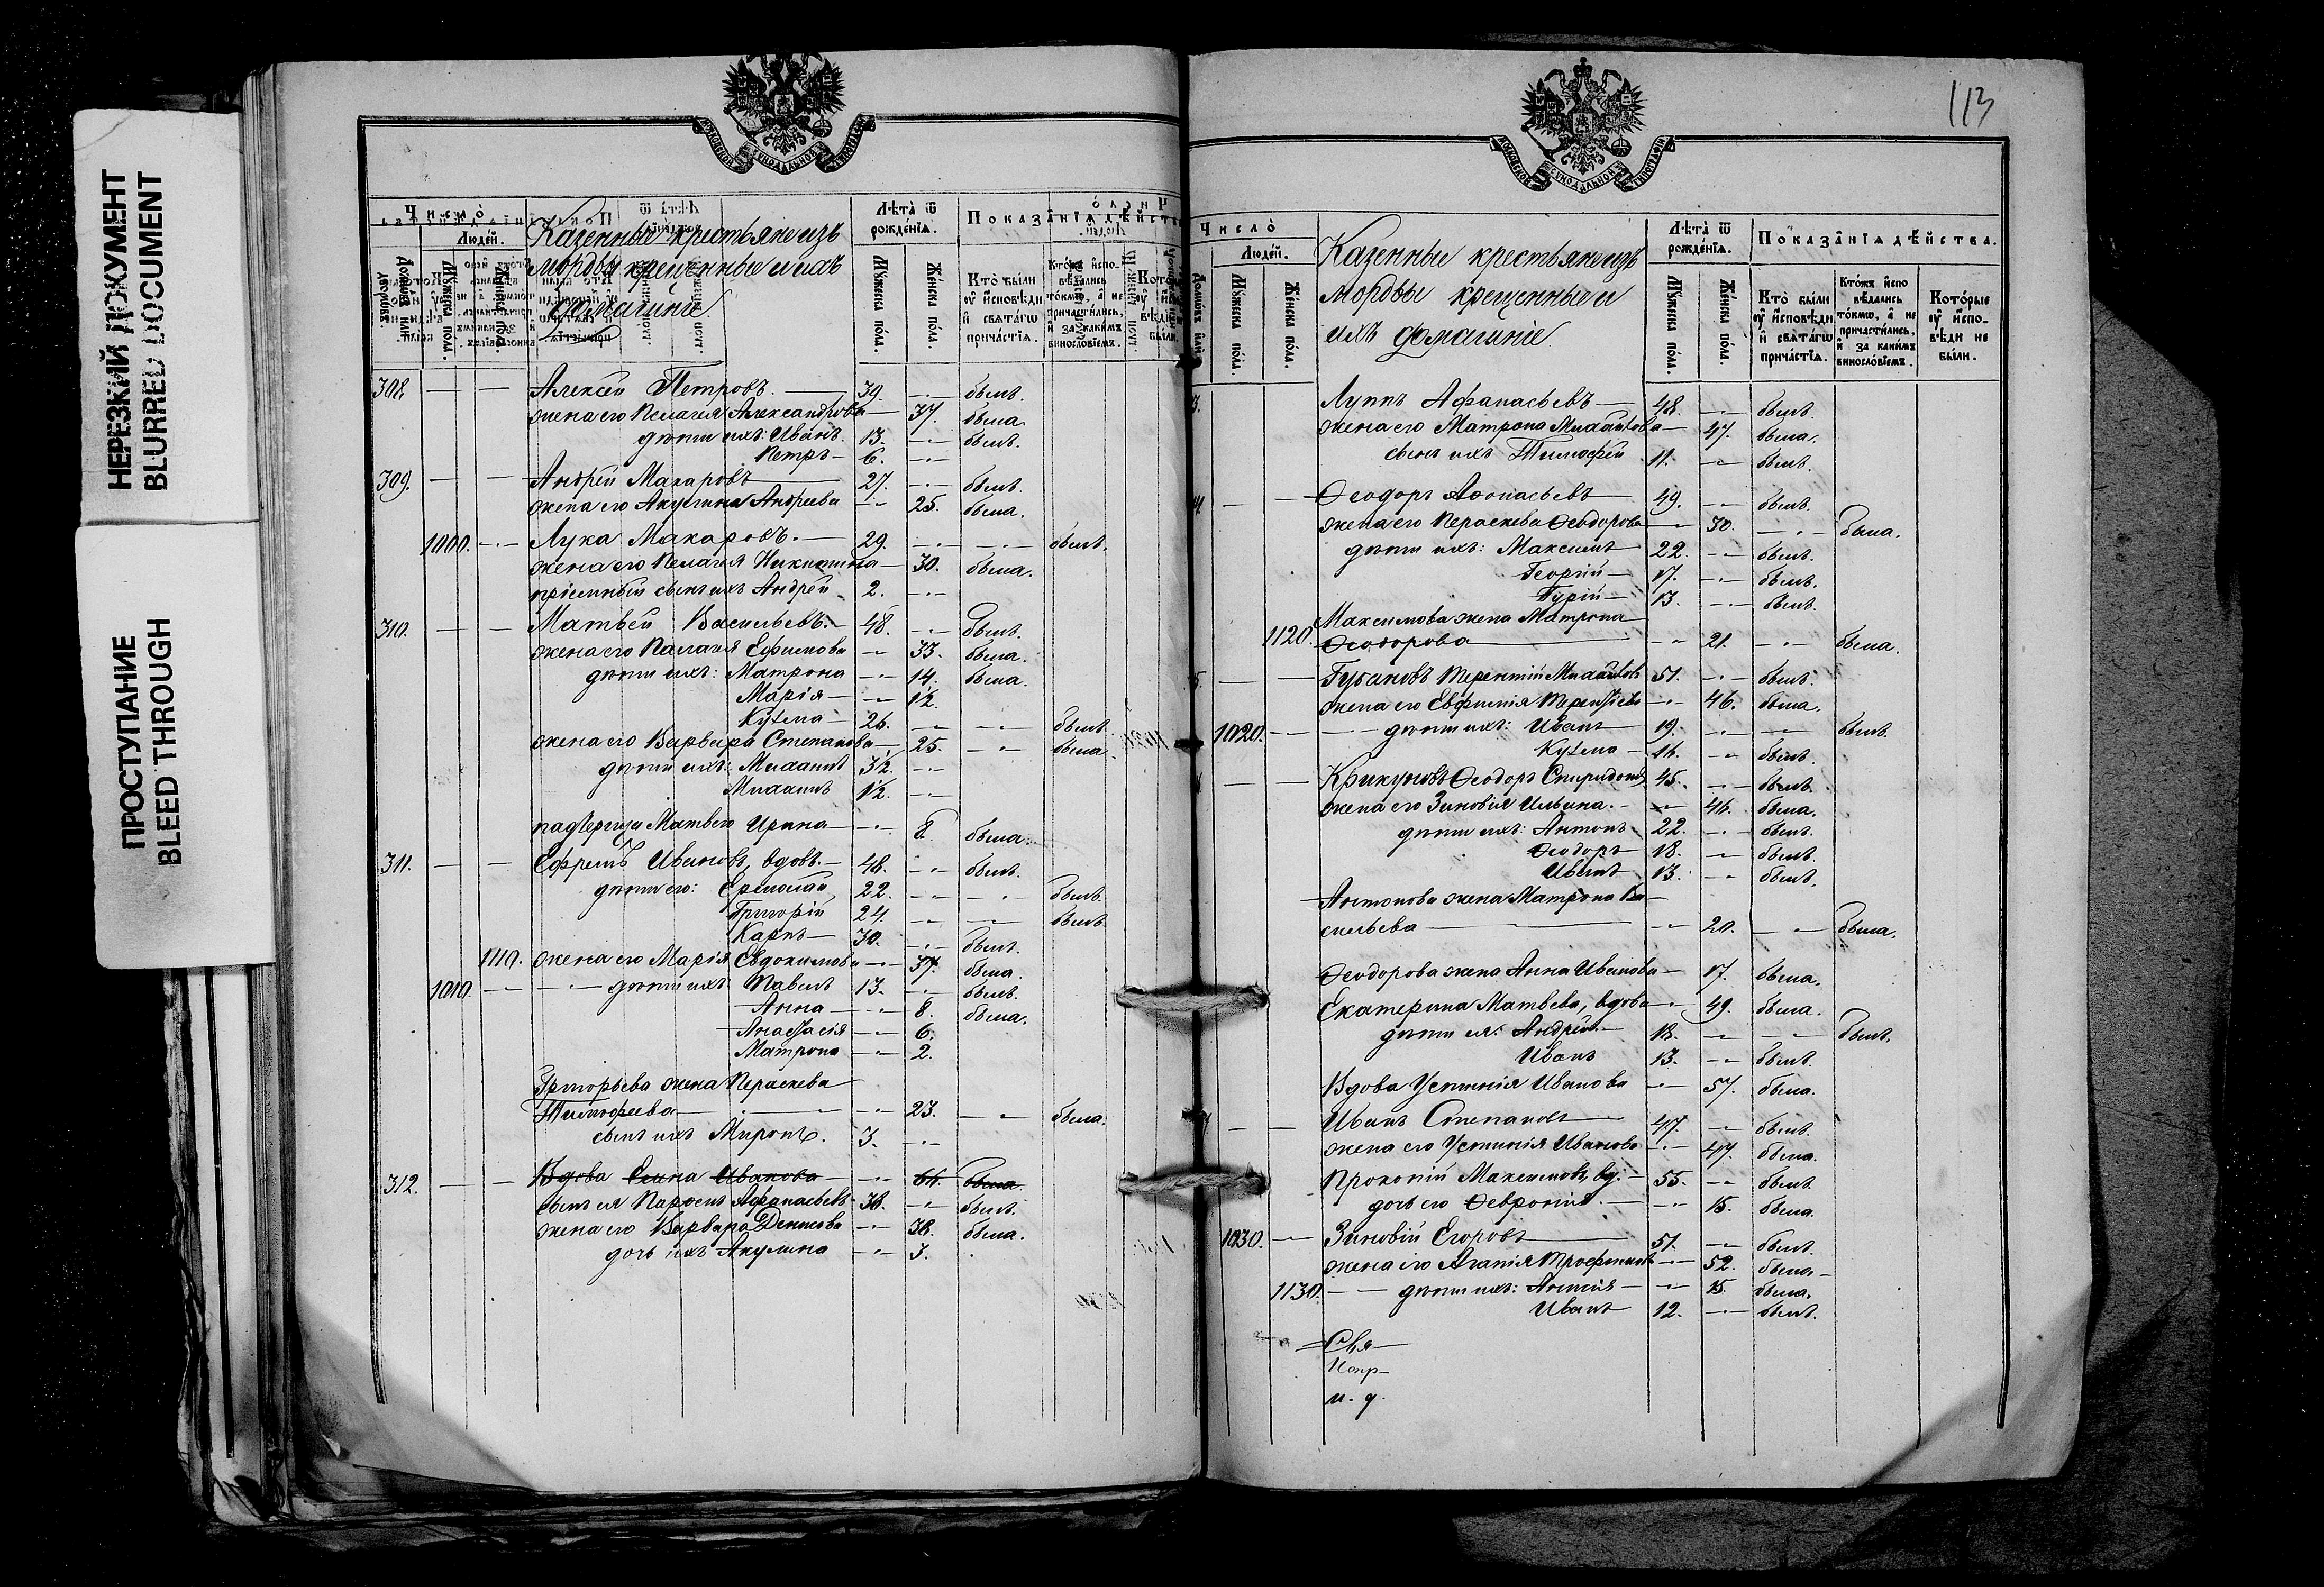 НЕРЕЗКИЙ ДОКУМЕНТ
BLURRED DOCUMENT
ПРОСТУПАНИЕ
BLEED THROUGH
Число̀
Людей.
Домовъ или дворовъ.
Мужеска пола.
Женска пола.
Казенные крестьяне изъ
мордвы крещенные и ихъ
домашніе
Лѣта ѿ рожденія.
Мужеска пола.
Женска пола.
Показанія дѣйства
Кто были ѹ исповѣди и свѧтагѡ причастія.
308. — — Алексѣй Петровъ. — 39. — былъ.
жена его Пелагея Александрова — 37. была.
дѣти ихъ: Иванъ. 13. — былъ.
Петръ — 6. —
309. — — Андрей Макаровъ — 27. — былъ.
жена его Акулина Андреева — 25. была.
1000. — Лука Макаровъ. — 29. — — былъ.
жена его Пелагея Никитина — 30. была.
пріемный сынъ ихъ Андрей 2. —
310. — — Матвѣй Васильевъ. — 48. — былъ.
жена его Палагея Ефимова — 33. была.
дѣти ихъ: Матрона — 14. была.
Марія — — 1/2.
Кузьма — 26. — — былъ.
жена его Варвара Степанова — 25. — была.
дѣти ихъ: Михаилъ 3 1/2. —
Михаилъ 1/2. —
падчерица Матвея Ирина — 8. была.
311. — — Ефремъ Ивановъ, вдовъ. — 48. — былъ.
дѣти его: Ермолай 22. — — былъ.
Григорій 24. — — былъ.
Карпъ — 30. — былъ.
1110. жена его Марія Евдокимова — 37. была.
1010. — — дѣти ихъ: Павелъ 13. — былъ.
Анна — — 8. была.
Анастасія — — 6.
Матрона — — 2.
Григорьева жена Параскева
Тимофеева — — 23. — была.
сынъ ихъ Миронъ. 3. —
312. — — Вдова Елена Иванова — 64. была.
сынъ ея Парфенъ Афанасьевъ 38. — былъ.
жена его Варвара Денисова — 38. была.
дочь ихъ Акулина — 3.
113
Число̀
Людей.
Мужеска пола.
Женска пола.
Казенные крестьяне изъ
мордвы крещенные и
ихъ домашніе
Лѣта ѿ рожденія.
Мужеска пола.
Женска пола.
Показанія дѣйства.
Кто были ѹ исповѣди и свѧтагѡ причастія.
Ктожъ исповѣдались токмѡ, а не причастились, и за какимъ винословіемъ.
Которые ѹ исповѣди не были.
3. Луппъ Афанасьевъ — 48. — былъ.
жена его Матрона Михайлова — 47. была.
сынъ ихъ Тимофей 11. — былъ.
4. — — Ѳеодоръ Аѳонасьевъ — 49. — былъ.
жена его Пераскева Ѳеодорова — 30. — была.
дѣти ихъ: Максимъ 22. — былъ.
Георгій — 17. — былъ.
Гурій — 13. — былъ.
Максимова жена Матрона
1120. Ѳеодорова — — 21. — была.
5. — — Губановъ Терентій Михайловъ 51. — былъ.
жена его Евфимія Терентіева — 46. была.
1020. — — дѣти ихъ: Иванъ 19. — — былъ.
Кузьма — 16. — былъ.
— — Крикуновъ Ѳеодоръ Спиридоновъ 45. — былъ.
жена его Зиновія Ильина. — 46. была.
дѣти ихъ: Антонъ 22. — былъ.
Ѳеодоръ 18. — былъ.
Иванъ 13. — былъ.
Антонова жена Матрона Ва-
сильева — — 20. — была.
Ѳеодорова жена Анна Иванова — 17. была.
Екатерина Матвеева, вдова — 49. была.
дѣти ея: Андрей — 18. — — былъ.
Иванъ 13. — былъ.
Вдова Устинія Иванова — 57. была.
7. — — Иванъ Степановъ — 47. — былъ.
жена его Устинія Иванова — 47. была.
Прокопій Максимовъ, вд. — 55. — былъ.
дочь его Ѳевронія. — — 15. была.
1030. — Зиновій Егоровъ — 51. — былъ.
жена его Агапія Трофимова — 52. была.
1130. — — дѣти ихъ: — 15. была.
Иванъ 12. — былъ.